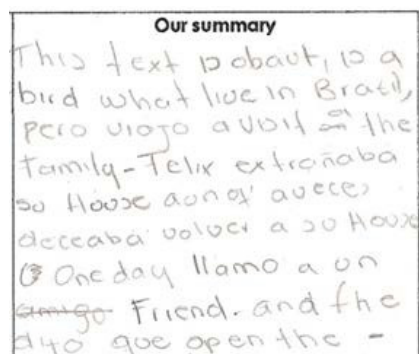 Our summary
This text is obaut, is a
bird what live in Brasil,
pero viajo a visit the
family-Felix extrañaba
su House aunq' aveces
deceaba volver a su House
One day llamo a un
amigo Friend. and the
dijo que open the -